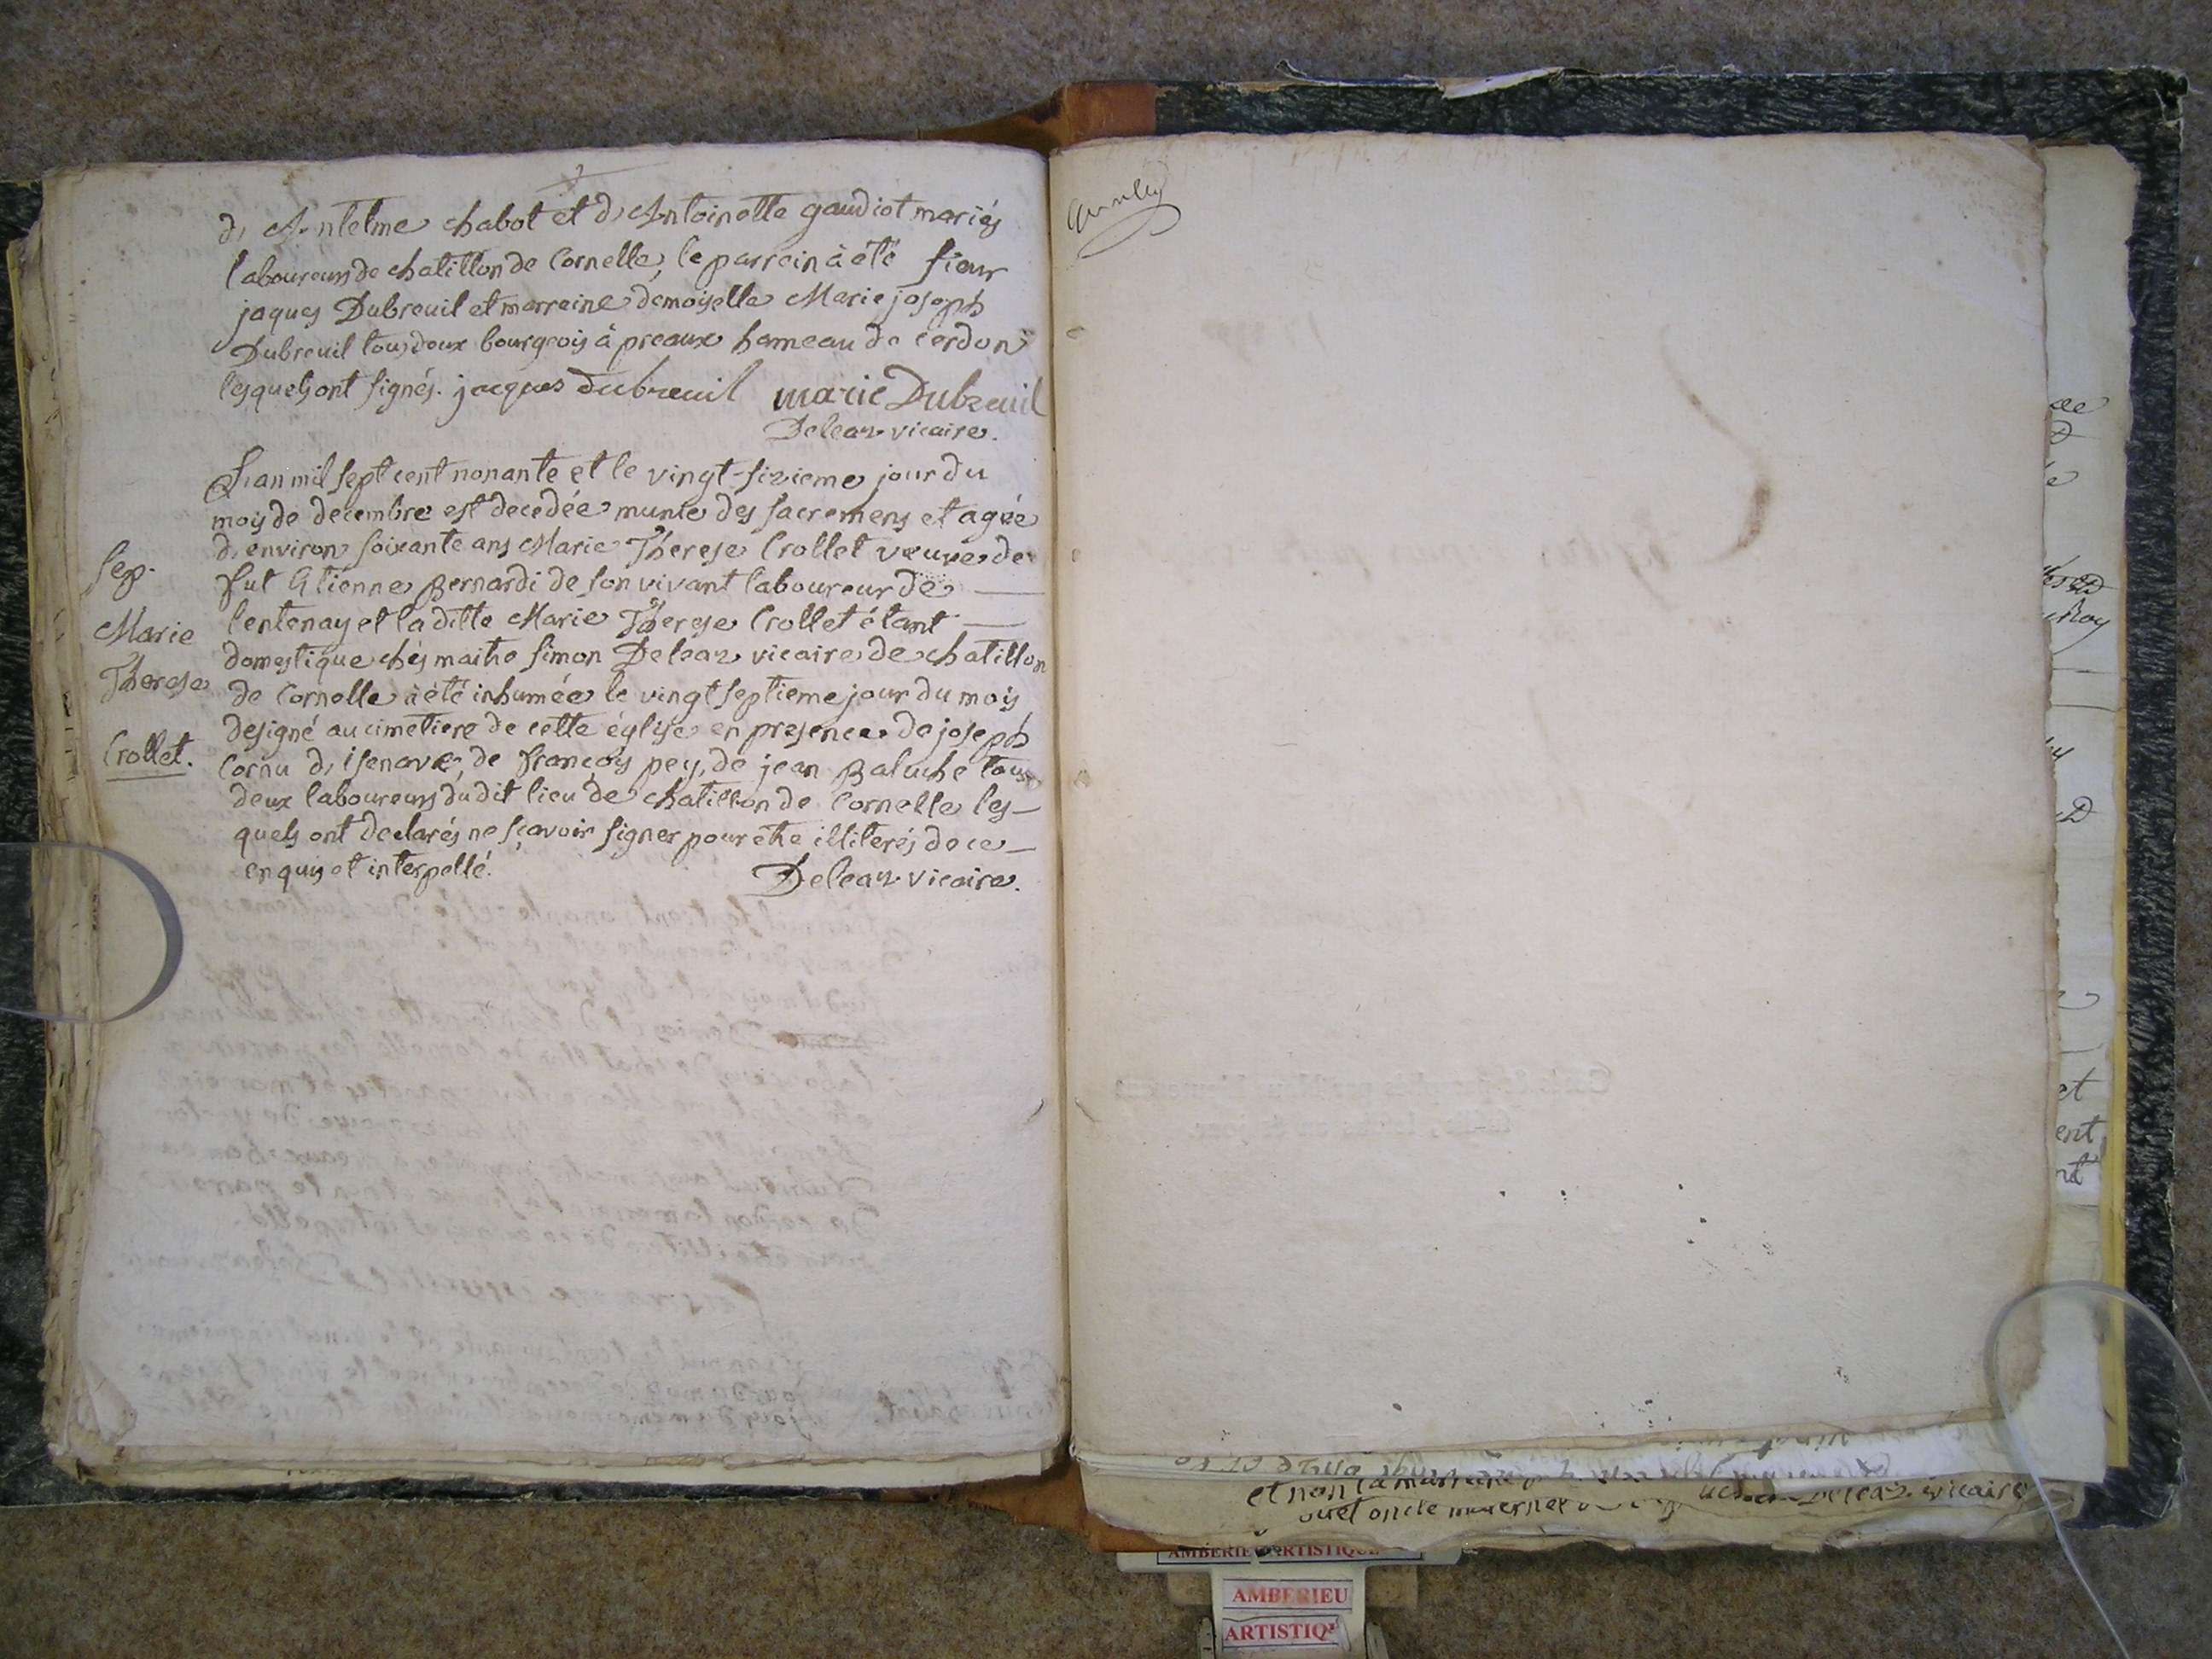 d'Antelme chabot et d'Antoinette gaudiot mariés
laboureurs de chatillon de Cornelle, le parrein à été sieur
jaques Dubreuil et marreine demoiselle Marie joseph
Dubreuil tous deux bourgeois à preaux hameau de cerdon
lesquels ont signés. jacques Dubreuil marie Dubreuil
Deleaz vicaire.
L'an mil sept cent nonante et le vingt-sixieme jour du
mois de decembre est decedée munie des sacremens et agée
d'environ soixante ans Marie Therese Crollet veuve de
fut Etienne Bernardi de son vivant laboureur de
lentenay et la ditte Marie Therese Crollet étant
domestique chés maitre simon Deleaz vicaire de chatillon
de Cornelle à été inhumée le vingt septieme jour du mois
designé au cimetiere de cette église en presence de joseph
Cornu d'isenave, de françois pey, de jean Baluche tous
deux laboureurs du dit lieu de chatillon de Cornelle les-
quels ont declarés ne sçavoir signer pour etre illiterés de ce
enquis et interpellé.
Deleaz vicaire.
Sep.
Marie
Therese
Crollet.
et non la marreine
Deleaz vicaire
oncle
et
ent
nt
AMBERIEU ARTISTIQUE
AMBERIEU
ARTISTIQ